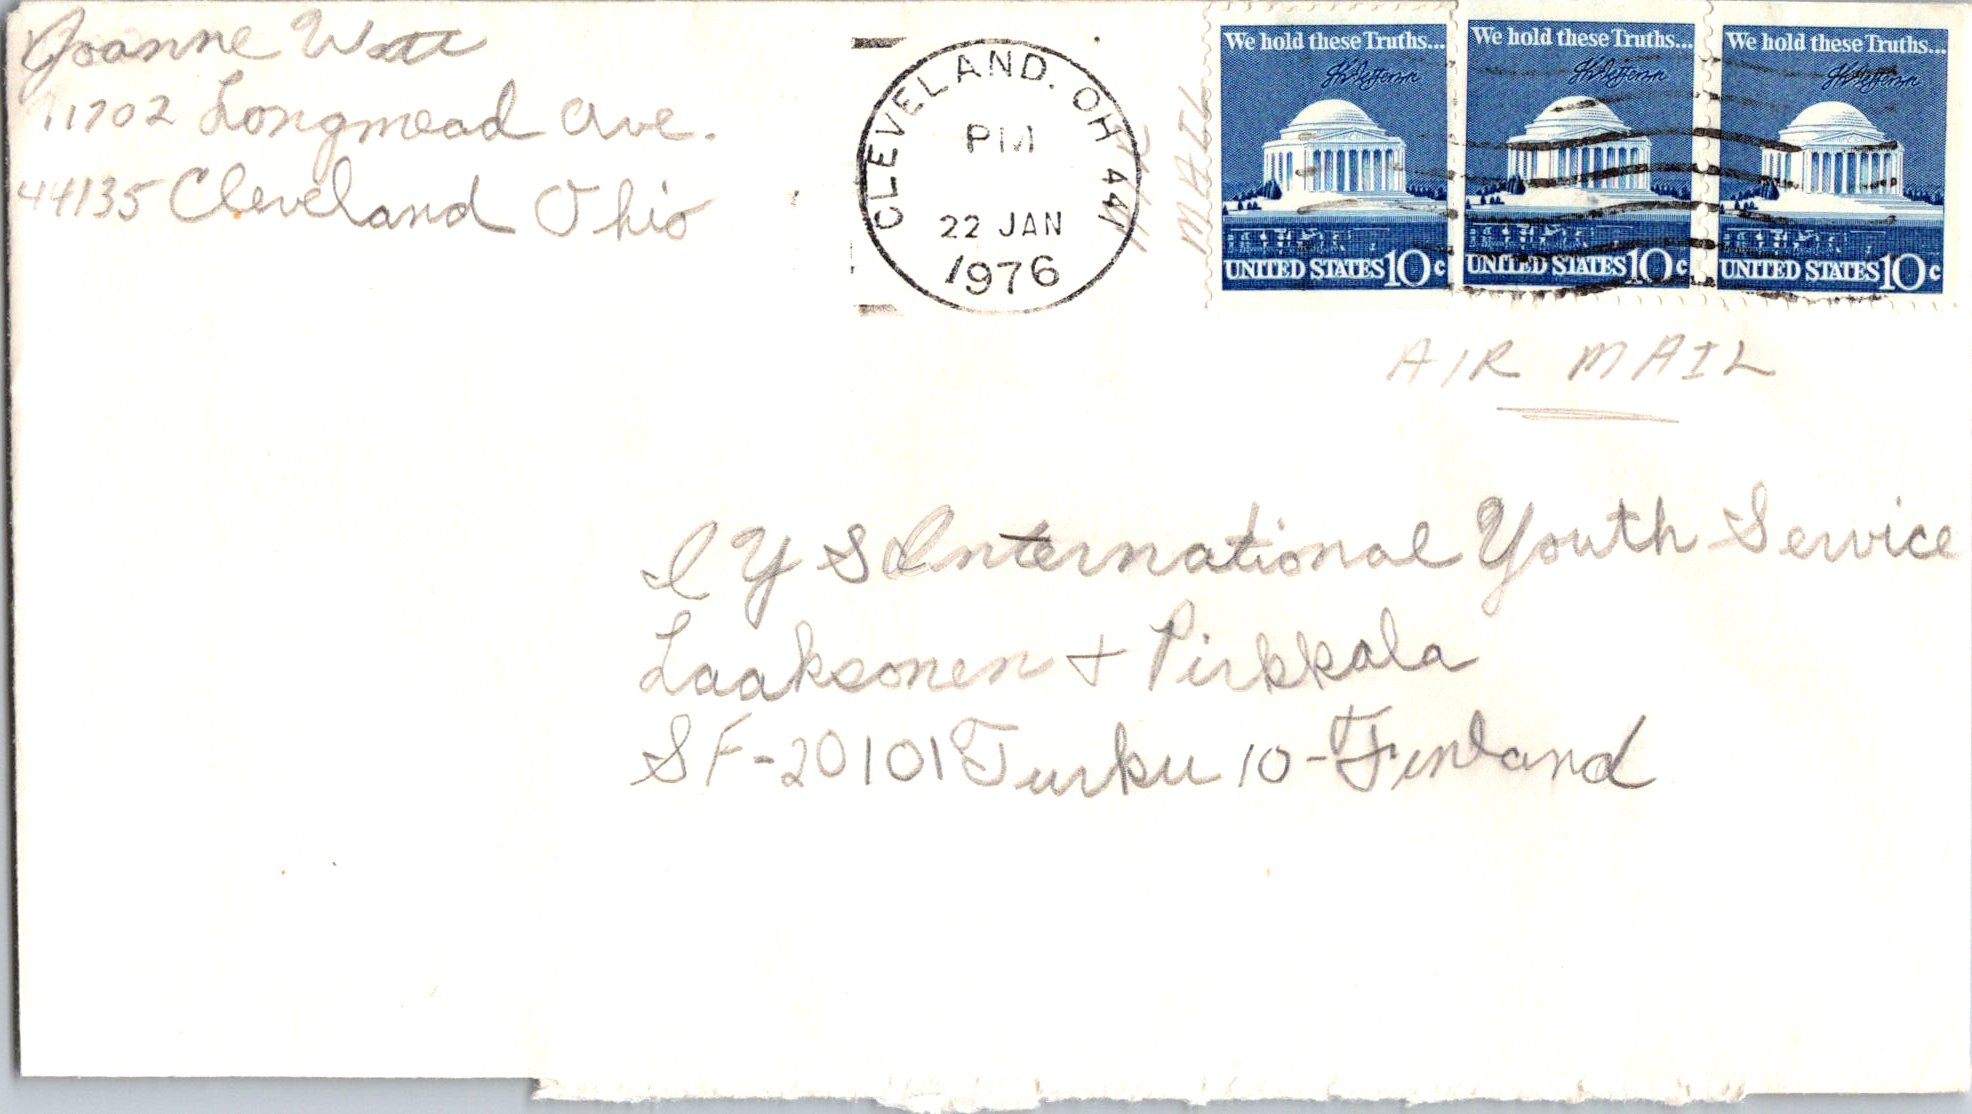 Joanne Watt
11702 Longmead Ave.
44135 Cleveland Ohio
CLEVELAND, OH 441
PM
22 JAN
1976
AIR
MAIL
We hold these Truths...
Th Jefferson
UNITED STATES 10c
We hold these Truths...
Th Jefferson
UNITED STATES 10c
We hold these Truths...
Th Jefferson
UNITED STATES 10c
AIR MAIL
I Y S International Youth Service
Laaksonen + Pirkkala
SF-20101 Turku 10-Finland